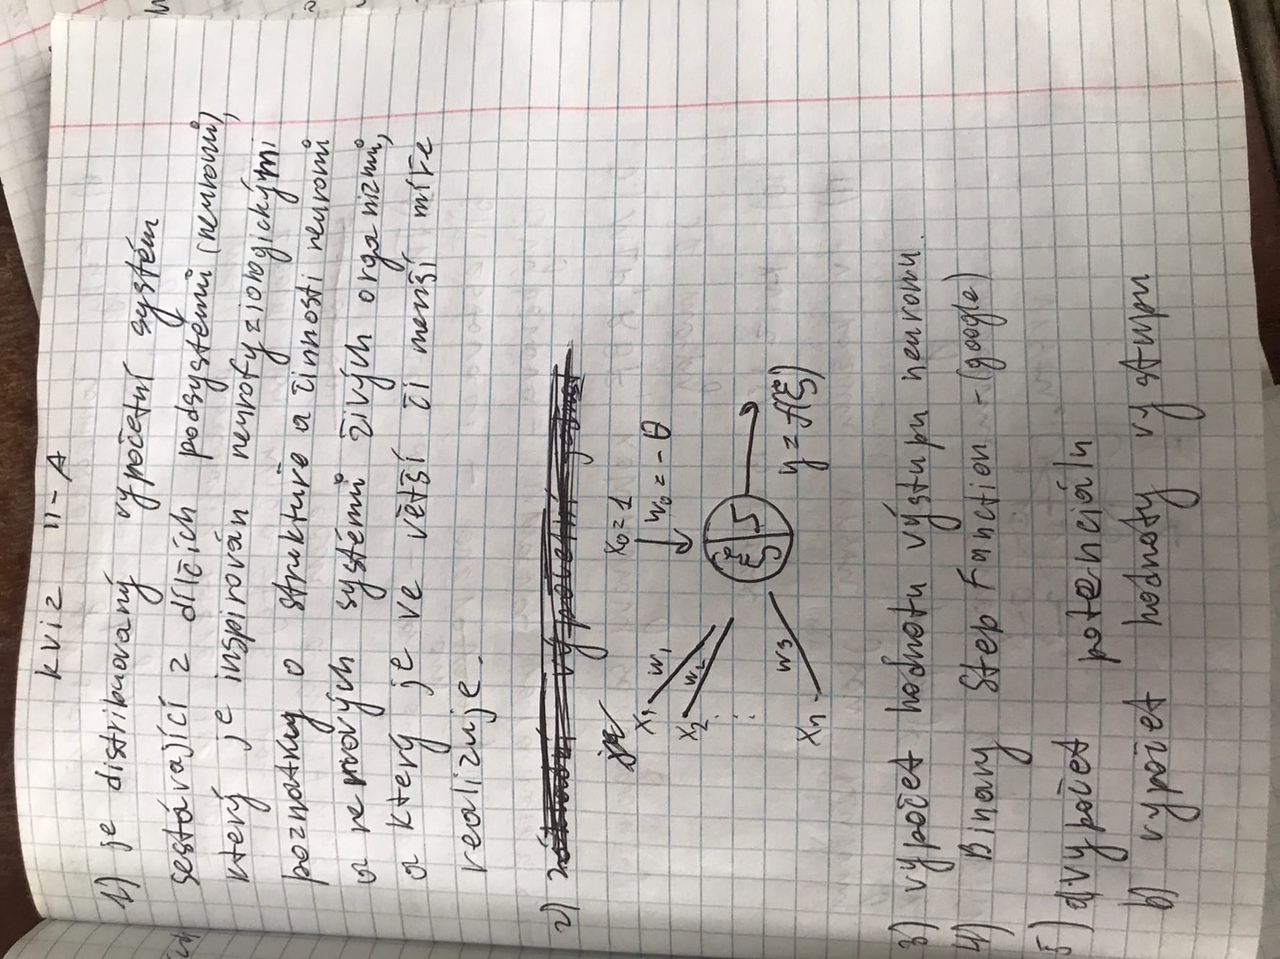 kviz 11-A
1) je distribuovaný výpočetní systém
sestávající z dílčích podsystémů (neuronů),
který je inspirován neurofyziologickými
poznatky o struktuře a činnosti neuronů
a nervových systémů živých organizmů,
a který je ve větší či menší míře
realizuje.
2)
x₀=1
w₀=-θ
x₁ w₁
x₂ w₂
⋮
xn w₃
ξ
y=f(ξ)
3) výpočet hodnotu výstupu neuronu.
4) Binary Step Function - (google)
5) a) výpočet potenciálu
b) výpočet hodnoty výstupu